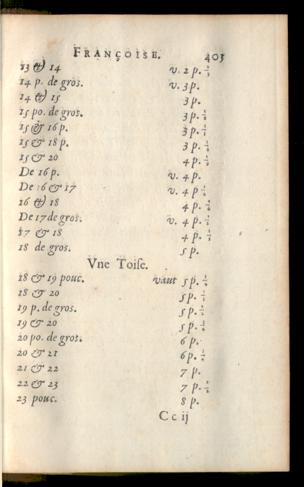 FRANÇOISE. 405
13 & 14 v. 2 p. 1/2
14 p. de gros. v. 3 p.
14 & 15 3 p.
15 po. de gros. 3 p. 1/2
15 & 16 p. 3 p. 1/2
15 & 18 p. 3 p. 1/2
15 & 20 4 p. 1/2
De 16 p. v. 4 p.
De 16 & 17 v. 4 p 1/2
16 & 18 4 p. 1/2
De 17 de gros. v. 4 p. 1/2
17 & 18 4 p. 1/2
18 de gros. 5 p.
Vne Toiſe.
18 & 19 pouc. vaut 5 p. 1/2
18 & 20 5 p. 1/2
19 p. de gros. 5 p. 1/2
19 & 20 5 p. 1/2
20 po. de gros. 6 p.
20 & 21 6 p. 1/2
21 & 22 7 p.
22 & 23 7 p. 1/2
23 pouc. 8 p.
C c ij